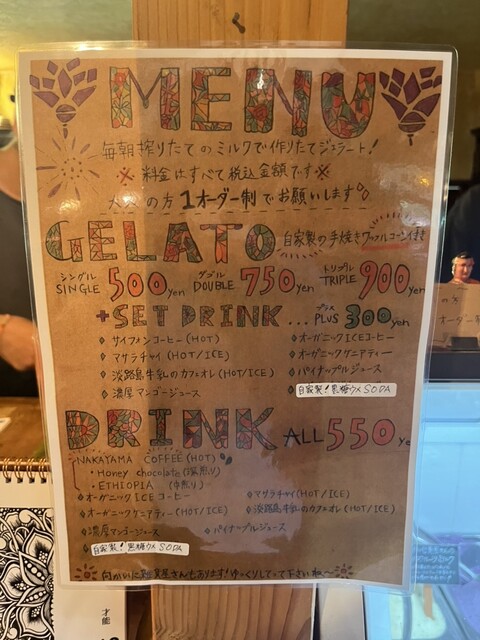 MENU
毎朝搾りたてのミルクで作りたてジェラート!
※料金はすべて税込金額です※
大人の方1オーダー制でお願いします。
GELATO 自家製の手焼きワッフルコーン付き
シングル SINGLE 500yen ダブル DOUBLE 750yen トリプル TRIPLE 900yen
+SET DRINK ... プラス PLUS 300yen
サイフォンコーヒー(HOT)
マサラチャイ(HOT/ICE)
淡路島牛乳のカフェオレ(HOT/ICE)
濃厚マンゴージュース
オーガニックICEコーヒー
オーガニックケニアティー
パイナップルジュース
自家製!黒糖ウメSODA
DRINK ALL 550ye
NAKAYAMA COFFEE(HOT)
・Honey chocolate(深煎り)
・ETHIOPIA (中煎り)
オーガニックICEコーヒー
オーガニックケニアティー(HOT/ICE)
濃厚マンゴージュース
マサラチャイ(HOT/ICE)
淡路島牛乳のカフェオレ(HOT/ICE)
パイナップルジュース
自家製!黒糖ウメSODA
向かいに雑貨屋さんもあります!ゆっくりしてって下さいね〜
才能
オーダー制